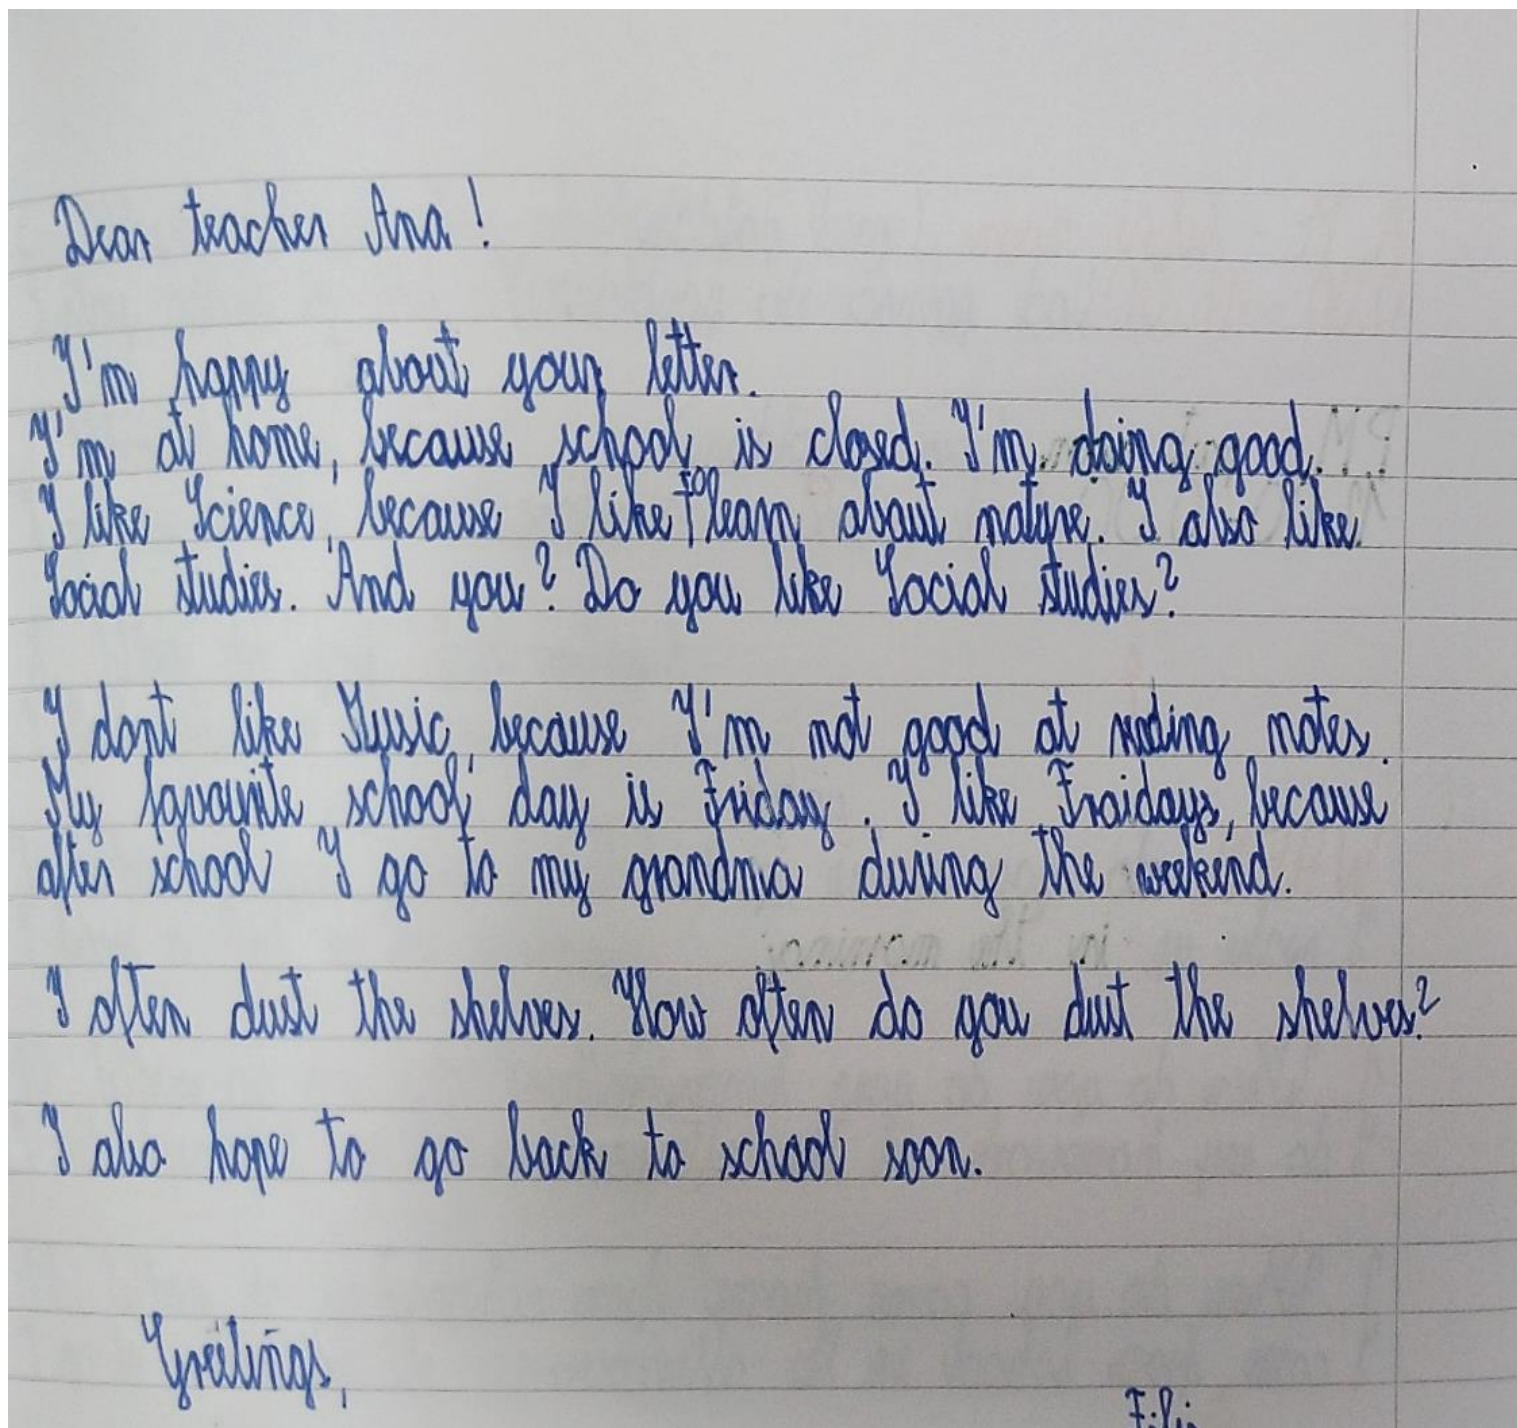 Dear teacher Ana!
I'm happy about your letter.
I'm at home, because school is closed. I'm doing good.
I like Science, because I like to learn about nature. I also like
Social studies. And you? Do you like Social studies?
I dont like Music, because I'm not good at reding notes.
My favourite school day is Friday. I like Fraidays, because
after school I go to my grandma during the weekend.
I often dust the shelves. How often do you dust the shelves?
I also hope to go back to school soon.
Greetings,